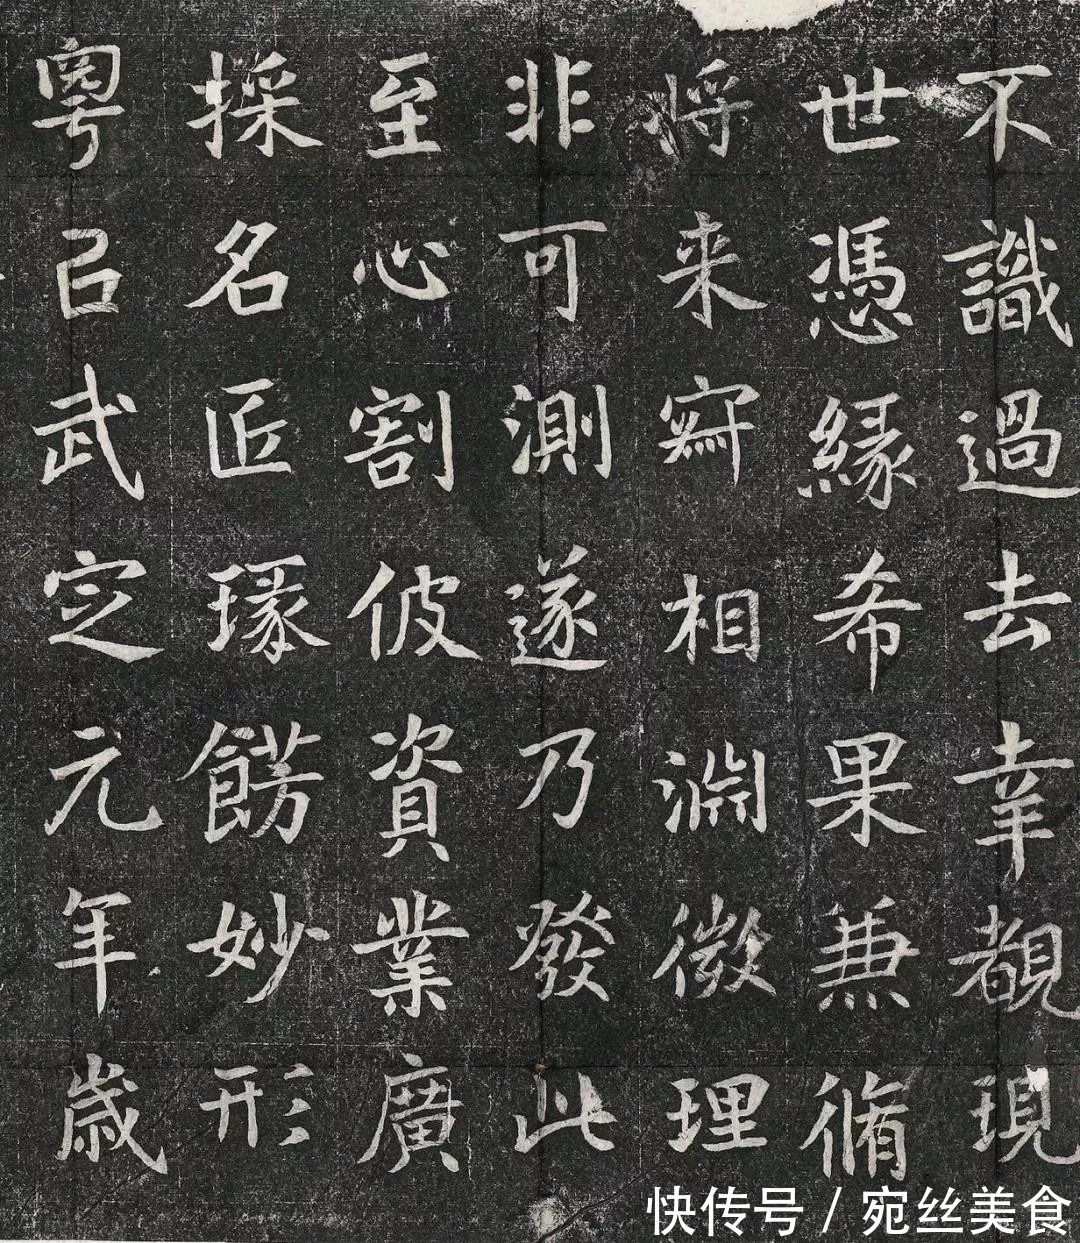 不識過去幸覩現
世憑緣希果兼脩
将来寂相淵微理
非可測遂乃發此
至心割彼資業廣
採名匠琢餝妙形
粵以武定元年歲
快传号 / 宛丝美食